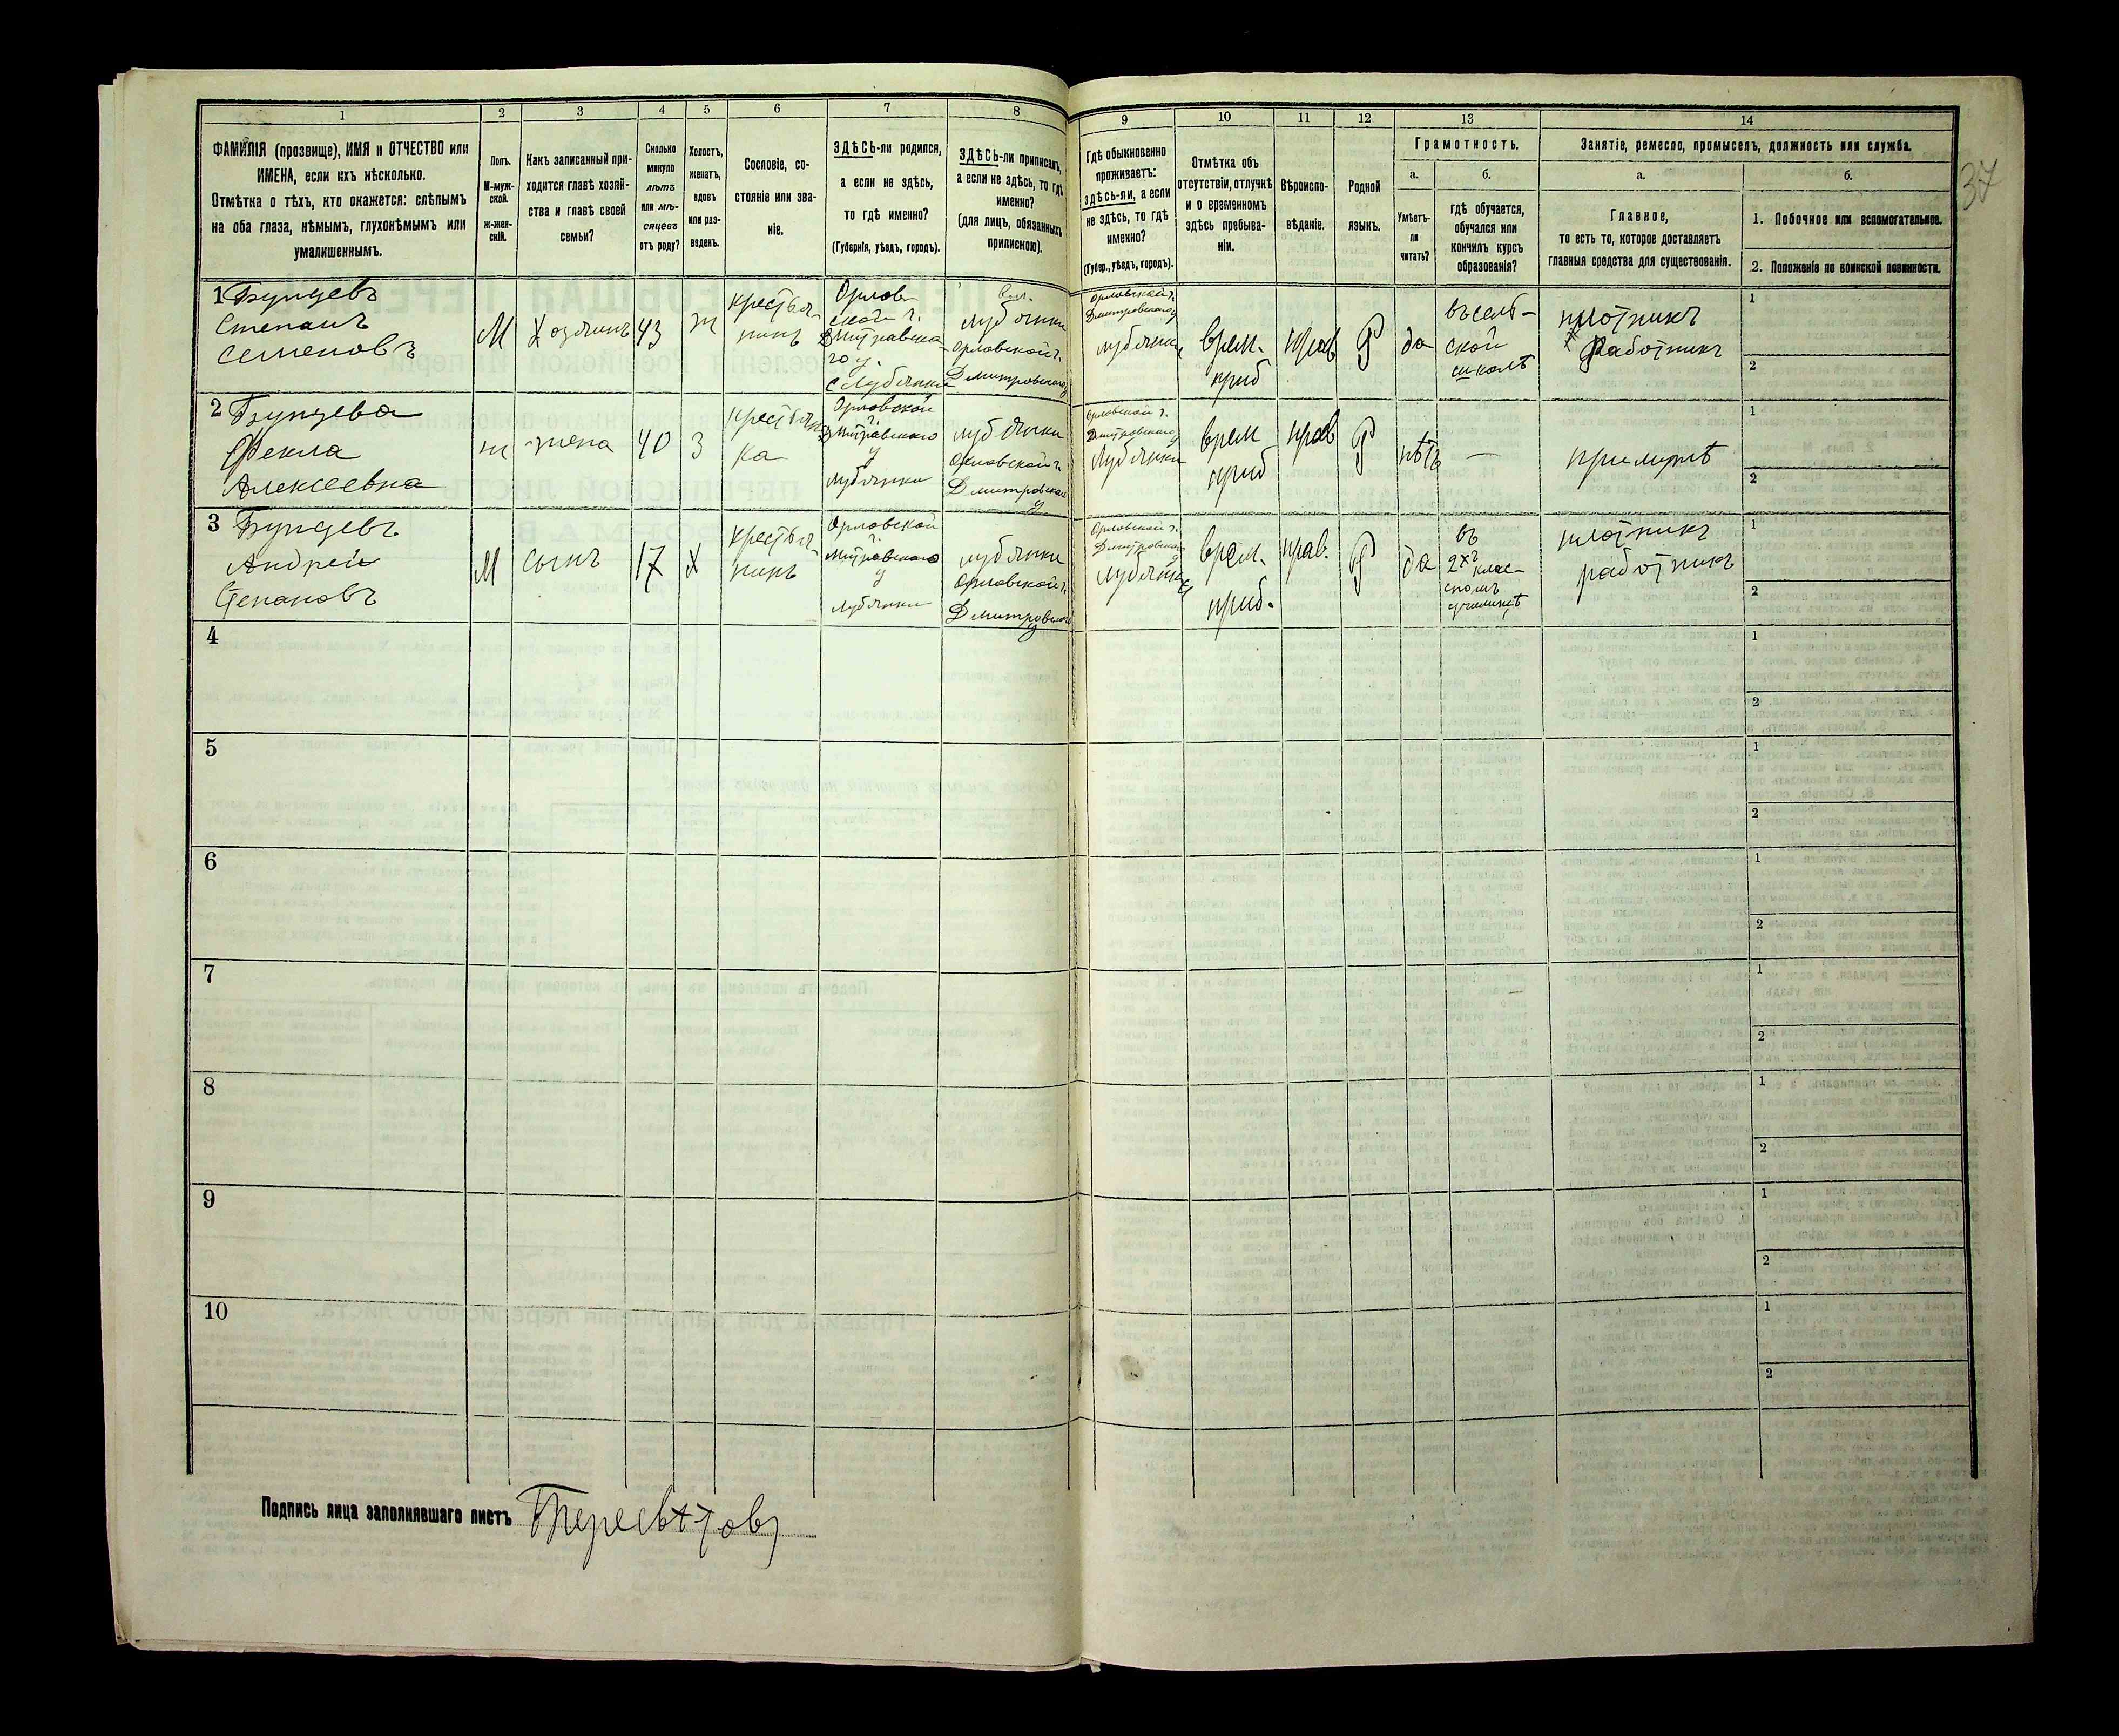 37
1
2
3
4
5
6
7
8
9
10
11
12
13
14
ФАМИЛІЯ (прозвище), ИМЯ и ОТЧЕСТВО или
ИМЕНА, если ихъ нѣсколько.
Отмѣтка о тѣхъ, кто окажется: слѣпымъ
на оба глаза, нѣмымъ, глухонѣмымъ или
умалишеннымъ.
Полъ.
М-муж-
ской.
Ж-жен-
скій.
Какъ записанный при-
ходится главѣ хозяй-
ства и главѣ своей
семьи?
Сколько
минуло
лѣтъ
или мѣ-
сяцевъ
отъ роду?
Холостъ,
женатъ,
вдовъ
или раз-
веденъ.
Сословіе, со-
стояніе или зва-
ніе.
ЗДѢСЬ-ли родился,
а если не здѣсь,
то гдѣ именно?
(Губернія, уѣздъ, городъ).
ЗДѢСЬ-ли приписанъ,
а если не здѣсь, то гдѣ
именно?
(для лицъ, обязанныхъ
припискою).
Гдѣ обыкновенно
проживаетъ:
здѣсь-ли, а если
не здѣсь, то гдѣ
именно?
(Губер., уѣздъ, городъ).
Отмѣтка объ
отсутствіи, отлучкѣ
и о временномъ
здѣсь пребыва-
ніи.
Вѣроиспо-
вѣданіе.
Родной
языкъ.
Грамотность.
а.
Умѣетъ-
ли
читать?
б.
гдѣ обучается,
обучался или
кончилъ курсъ
образованія?
Занятіе, ремесло, промыселъ, должность или служба.
а.
Главное,
то есть то, которое доставляетъ
главныя средства для существованія.
б.
1. Побочное или вспомогательное.
2. Положеніе по воинской повинности.
1
Степанъ
Семеновъ
М
Хозяинъ
43
ж
крестья-
нинъ
Орлов-
ской г.
Дмитравска-
го у.
с Лубянки
Лубянки
Орловской г.
Дмитровскаго у
Орловской г.
Дмитровскаго у
Лубянки
врем.
приб
Прав
Р
да
въ сель-
ской
школѣ
плотникъ
работникъ
1
2
2
Фекла
Алексеевна
ж
жена
40
З
крестьян
ка
Орловской
г.
Дмитравскаго
у
Лубянки
Лубянки
Орловской г
Дмитровскаго
у
Орловской г.
Дмитровскаго
у
Лубянки
врем
приб
прав
Р
нѣтъ
—
при мужѣ
1
2
3
Андрей
Степановъ
М
сынъ
17
Х
крестья-
нинъ
Орловской
г.
Дмитравскаго
у
Лубянки
Лубянки
Орловской г.
Дмитровскаго
у
Орловской г.
Дмитровскаго
у
Лубянки
врем.
приб.
прав.
Р
да
въ
2хъ клас-
сномъ
училищѣ
плотникъ
работникъ
1
2
4
1
2
5
1
2
6
1
2
7
1
2
8
1
2
9
1
2
10
1
2
Подпись лица заполнявшаго листъ